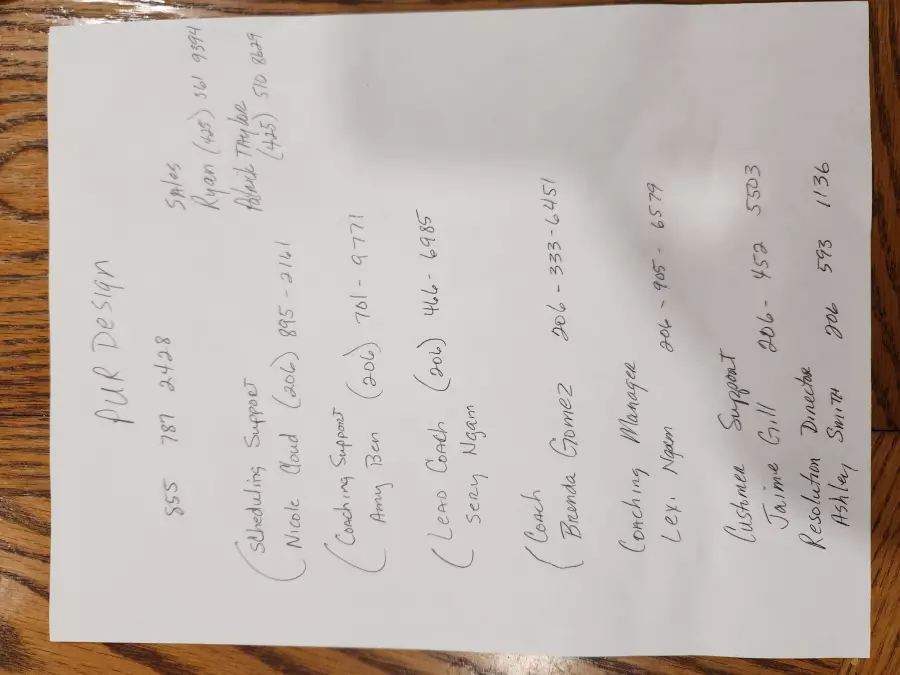 PUR Design
855 787 2428
Sales
Ryan (425) 561 9394
(425) 510 8629
Scheduling Support
Nicole Cloud (206) 895-2161
Coaching Support
Amy Ben (206) 701-9771
Lead Coach (206) 466-6985
Sery Ngam
Coach
Brenda Gomez 206-333-6451
Coaching Manager
Lexi Ngam 206-905-6579
Customer Support
Jaime Gill 206-452 5503
Resolution Director
Ashley Smith 206 593 1136